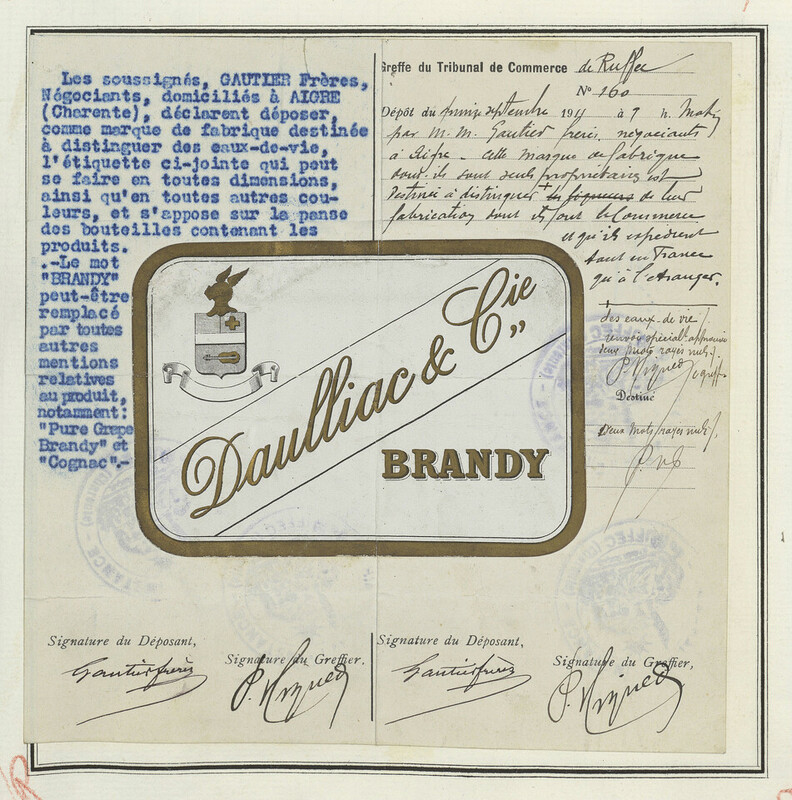 Les soussignés, GAUTIER Frères,
Négociants, domiciliés à AIGRE
(Charente), déclarent déposer,
comme marque de fabrique destinée
à distinguer des eaux-de-vie,
l'étiquette ci-jointe qui peut
se faire en toutes dimensions,
ainsi qu'en toutes autres cou-
leurs, et s'appose sur la panse
des bouteilles contenant les
produits.
.-Le mot
"BRANDY"
peut-être
remplacé
par toutes
autres
mentions
relatives
au produit,
notamment:
"Pure Grape
Brandy" et
"Cognac".-
Greffe du Tribunal de Commerce de Ruffec
No 160
Dépôt du quinze septembre 191 à 9 h. Matin
par M.M. Gautier frères, négociants
à Aigre - cette marque de fabrique
dont ils sont seuls propriétaires est
destinée à distinguer + les liqueurs de leur
fabrication dont ils font le Commerce
et qu'ils expédient
tant en France
qu'à l'étranger.
des eaux-de-vie
renvoi spécial approuvé
deux mots rayés nuls.
P. Hiqued
Destiné
Deux mots rayés nuls
Daulliac & Cie
BRANDY
Signature du Déposant,
Gautier frères
Signature du Greffier,
Signature du Déposant,
Gautier frères
Signature du Greffier,